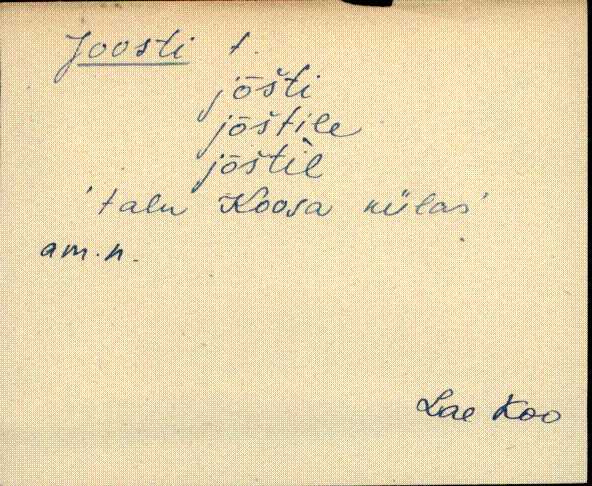 Joosti t.
jōšti
jōštile
jōštil
'talu Koosa külas'
am.n.
Lae Koo